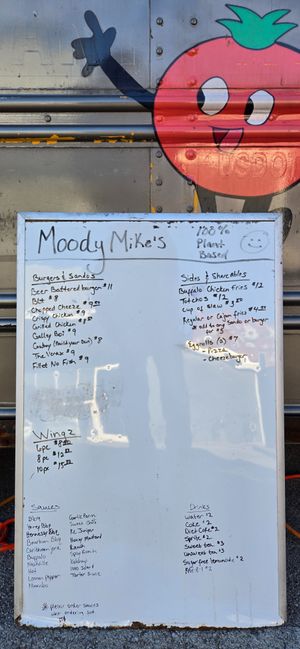 Moody Mike's
100% Plant Based
Burgers & Sandos
Beer Battered burger $11
Blt $8
Chopped Cheese $9.50
Crispy Chicken $9
Grilled Chicken $8.50
Galley Boi $9
Cowboy (Build your own) $8
The Verse $9
Fillet No Fish $9
Sides & Shareables
Buffalo Chicken Fries $12
Totchos $12
Cup of Slaw $3.50
Regular or Cajun Fries $4.00
* add to any Sando or burger for $3
Eggrolls (2) $7
- Pizza
- Cheeseburger
Wingz
6pc
8pc $12
10pc $15
Sauces
Bbq
Honey Bbq
Bourbon Bbq
Caribbean Jerk
Buffalo
Nashville
Hot
Lemon Pepper
Mambo
Garlic Parm
Sweet Chili
Honey Mustard
Ranch
Tartar Sauce
Drinks
Water $2
Coke $2
Diet Coke $2
Sprite $2
Sweet tea $3
Unsweet tea $3
Sugar free lemonade $2